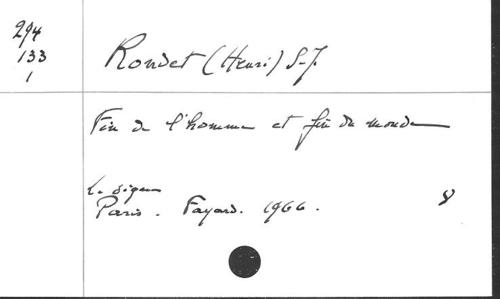 294
133
1
Rondet (Henri) S.J.
Fin de l'homme et fin du monde
Le signe
Paris. Fayard. 1966. 8